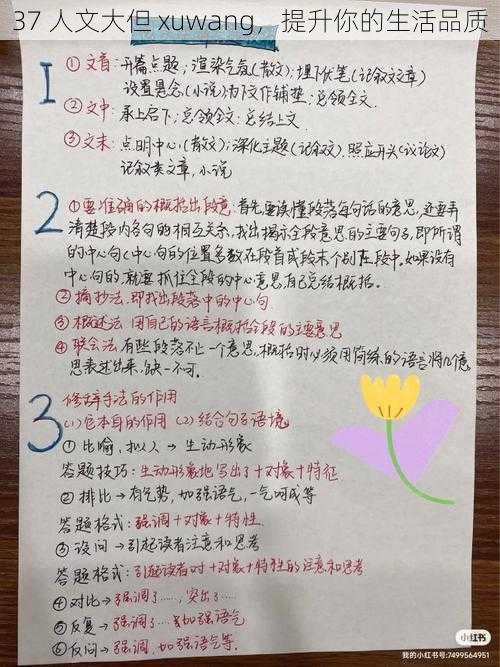 37 人文大但 xuwang，提升你的生活品质
1 ①文首：开篇点题；渲染气氛(散文)；埋下伏笔(记叙文章)
设置悬念(小说)为下文作铺垫；总领全文.
②文中：承上启下；总领全文；总结上文.
③文末：点明中心(散文)；深化主题(记叙文).照应开头(议论文)
记叙类文章，小说
2 ①要准确的概括出段意.首先要读懂段落每句话的意思，还要弄
清楚段内各句的相互关系，找出揭示全段意思的主要句子，即所谓
的中心句(中心句的位置多数在段首或段末个别在段中.如果没有
中心句的，就要抓住全段的中心意思，自己总结概括.
②摘抄法，即找出段落中的中心句
③概述法 用自己的语言概括全段的主要意思
④联合法，有些段落不止一个意思，概括时必须用简练的语言将几个意
思表述出来，缺一不可.
3 修辞手法的作用
(1)它本身的作用 (2)结合句子语境
①比喻，拟人→生动形象
答题技巧：生动形象地写出了+对象+特征
②排比→有气势，加强语气，一气呵成等
答题格式：强调+对象+特性
③设问→引起读者注意和思考
答题格式：引起读者对+对象+特性的注意和思考
④对比→强调了……，突出了……
⑤反复→强调了……加强语气
⑥反问→强调，加强语气等.
小红书
我的小红书号:7499564951